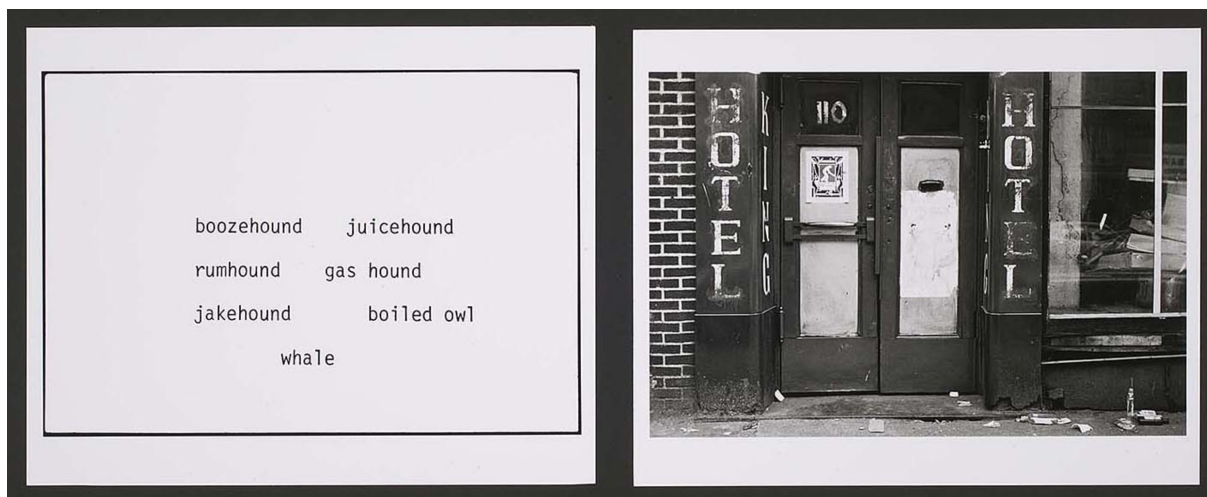 boozehound juicehound
rumhound gas hound
jakehound boiled owl
whale
HOTEL
KING
110
HOTEL